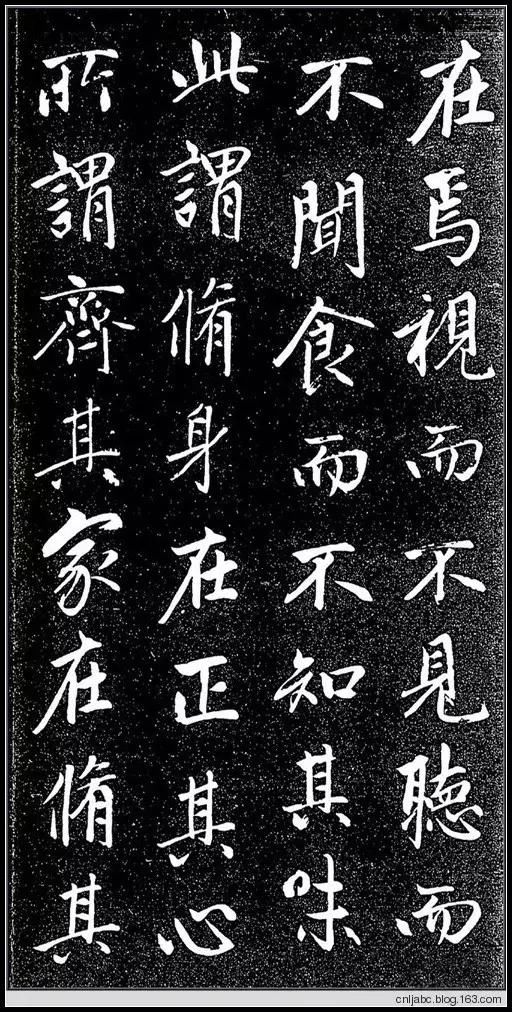 在焉視而不見聽而
不聞食而不知其味
此謂脩身在正其心
所謂齊其家在脩其
cnljabc.blog.163.com